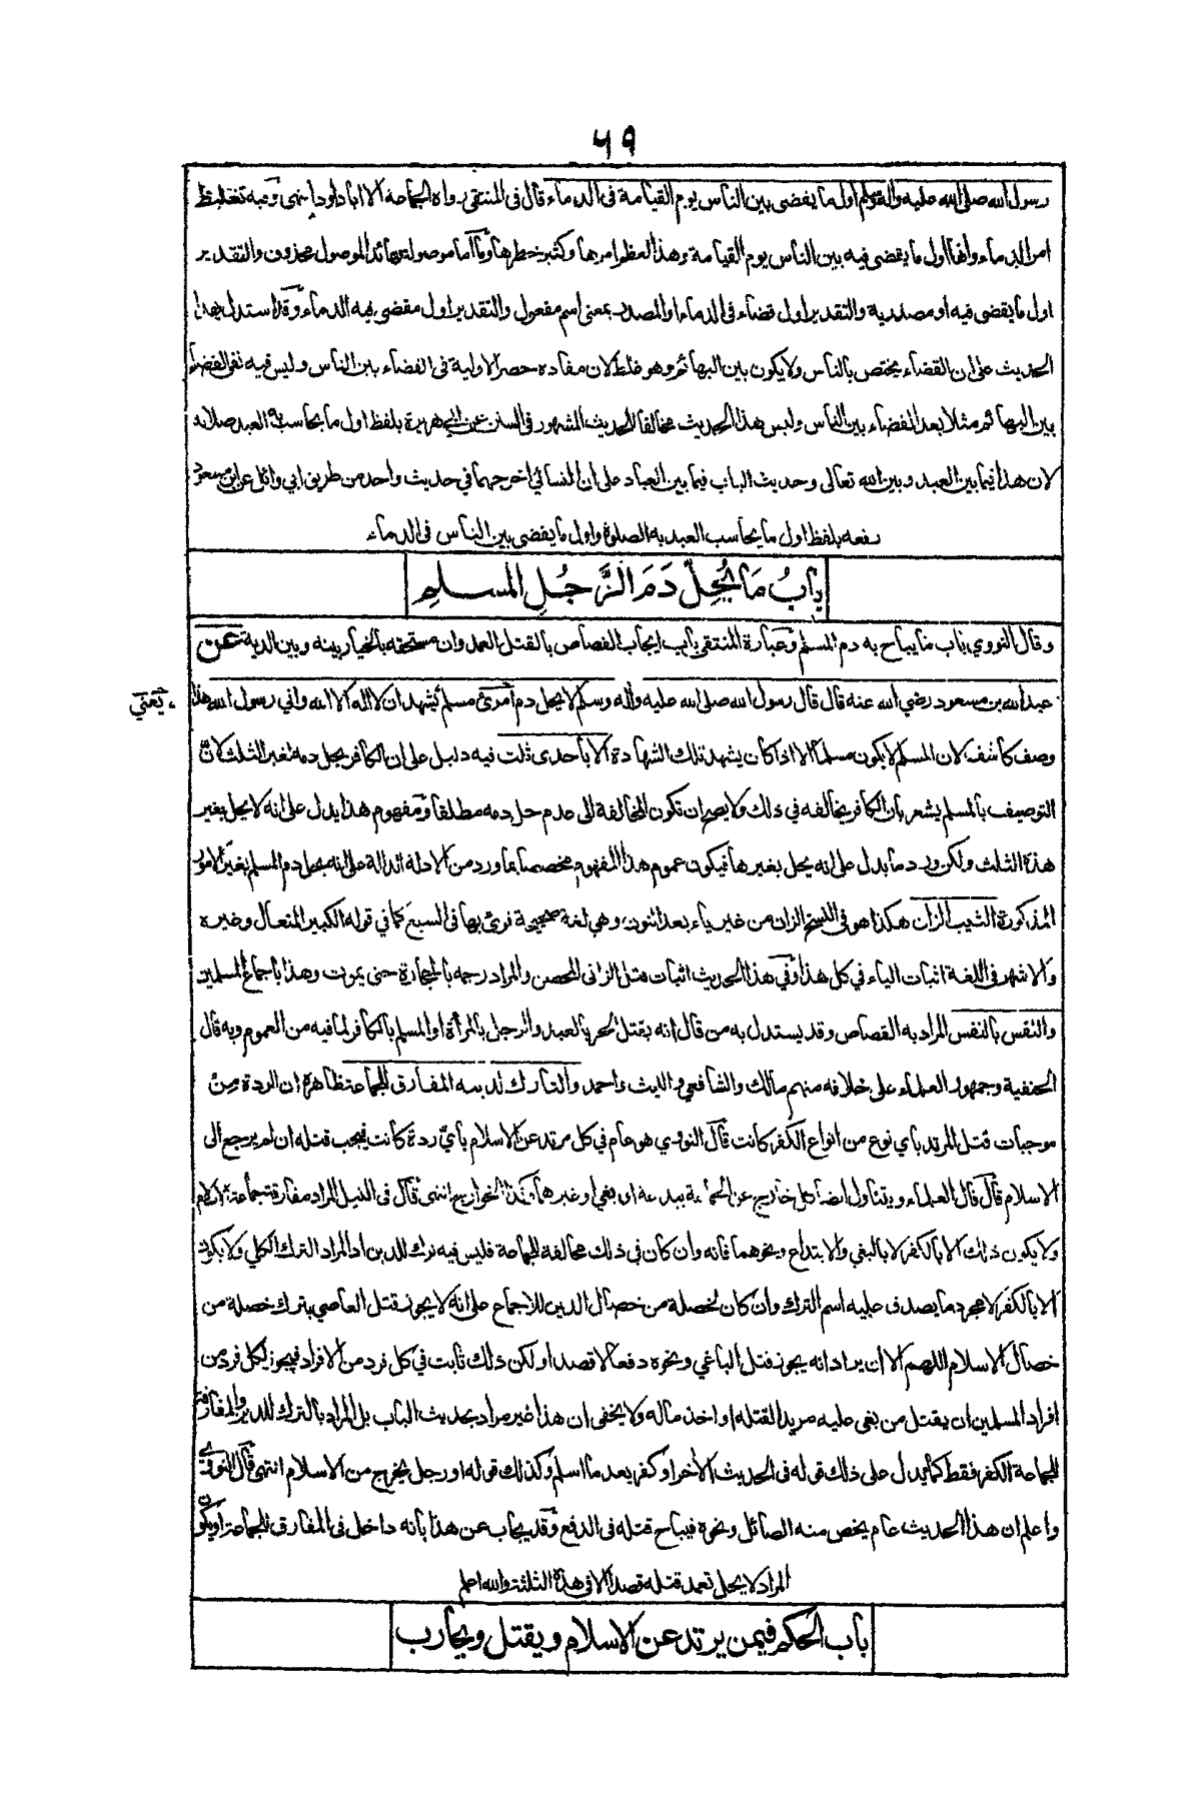 ٥٩
رسول الله صلى الله عليه وآله وسلم اول ما يقضى بين الناس يوم القيامة فى الدماء قال فى المنتقى رواه الجماعة الا ابا داود انتهى وفيه تغليظ
امر الدماء وانها اول ما يقضى فيه بين الناس يوم القيامة وهذا لعظم امرها وكثير خطرها وما اما موصولة وعائد الموصول محذوف والتقدير
اول ما يقضى فيه او مصدرية والتقدير اول قضاء فى الدماء او المصدر بمعنى اسم مفعول والتقدير اول مقضى فيه الدماء وقد استدل بهذا
الحديث على ان القضاء يختص بالناس ولا يكون بين البهائم وهو غلط لان مفاده حصر الاولية فى القضاء بين الناس وليس فيه نفى القضاء
بين البهائم مثلا بعد القضاء بين الناس وليس هذا الحديث مخالفا للحديث المشهور فى السنن عن ابي هريرة بلفظ اول ما يحاسب به العبد صلاته
لان هذا فيما بين العبد وبين الله تعالى وحديث الباب فيما بين العباد على ان النسائي اخرجهما في حديث واحد من طريق ابي وائل عن ابن مسعود
رفعه بلفظ اول ما يحاسب العبد به الصلوة واول ما يقضى بين الناس فى الدماء
بابُ مَا يُحِلُّ دَمَ الرَّجُلِ المسلمِ
وقال النووي باب ما يباح به دم المسلم وعبارة المنتقى باب ايجاب القصاص بالقتل العمد وان مستحقه بالخيار بينه وبين الدية عن
عبد الله بن مسعود رضي الله عنه قال قال رسول الله صلى الله عليه وآله وسلم لا يحل دم امرئ مسلم يشهد ان لا اله الا الله واني رسول الله هذا
يعني
وصف كاشف لان المسلم لا يكون مسلما الا اذا كان يشهد تلك الشهادة الا باحدى ثلث فيه دليل على ان الكافر يحل دمه لغير الثلث لان
التوصيف بالمسلم يشعر بان الكافر يخالفه في ذلك ولا يصح ان تكون المخالفة الى عدم حل دمه مطلقا ومفهوم هذا يدل على انه لا يحل بغير
هذه الثلث ولكن ورد ما يدل على انه يحل بغيرها فيكون عموم هذا المفهوم مخصصا بما ورد من الادلة الدالة على انه يحل دم المسلم بغير الامور
المذكورة الثيب الزان هكذا هو فى النسخ الزان من غير ياء بعد النون وهي لغة صحيحة قرئ بها فى السبع كما في قوله الكبير المتعال وغيره
والاشهر فى اللغة اثبات الياء في كل هذا وفي هذا الحديث اثبات قتل الزانى المحصن والمراد رجمه بالحجارة حتى يموت وهذا باجماع المسلمين
والنفس بالنفس المراد به القصاص وقد يستدل به من قال انه يقتل الحر بالعبد والرجل بالمرأة او المسلم بالكافر لما فيه من العموم وبه قال
الحنفية وجمهور العلماء على خلافه منهم مالك والشافعي والليث واحمد والتارك لدينه المفارق للجماعة ظاهره ان الردة من
موجبات قتل المرتد بأي نوع من انواع الكفر كانت قال النووي هو عام في كل مرتد عن الاسلام بأي ردة كانت فيجب قتله ان لم يرجع الى
الاسلام قال قال العلماء ويتناول ايضا كل خارج عن الجماعة ببدعة او بغي او غيرهما وكذا الخوارج انتهى قال فى النيل المراد مفارقة جماعة الاسلام
ولا يكون ذلك الا بالكفر لا بالبغي والابتداع ونحوهما فانه وان كان في ذلك مخالفة للجماعة فليس فيه ترك للدين اذ المراد الترك الكلي ولا يكون
الا بالكفر لا مجرد ما يصدق عليه اسم الترك وان كان لخصلة من خصال الدين للاجماع على انه لا يجوز قتل العاصي بترك خصلة من
خصال الاسلام اللهم الا ان يراد انه يجوز قتل الباغي ونحوه دفعا لا قصدا ولكن ذلك ثابت في كل فرد من الافراد فيجوز لكل فرد من
افراد المسلمين ان يقتل من بغى عليه مريدا لقتله او اخذ ماله ولا يخفى ان هذا غير مراد بحديث الباب بل المراد بالترك للدين والمفارقة
للجماعة الكفر فقط كما يدل على ذلك قوله فى الحديث الآخر او كفر بعد ما اسلم وكذلك قوله او رجل يخرج من الاسلام انتهى قال النووي
واعلم ان هذا الحديث عام يخص منه الصائل ونحوه فيباح قتله فى الدفع وقد يجاب عن هذا بأنه داخل فى المفارق للجماعة او يكون
المراد لا يحل تعمد قتله قصدا الا فى هذه الثلثة والله اعلم
باب الحكم فيمن يرتد عن الاسلام ويقتل ويحارب